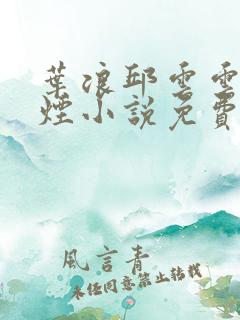 葉浪邱雲雲
煙小說免費
風言青
未经同意禁止转载